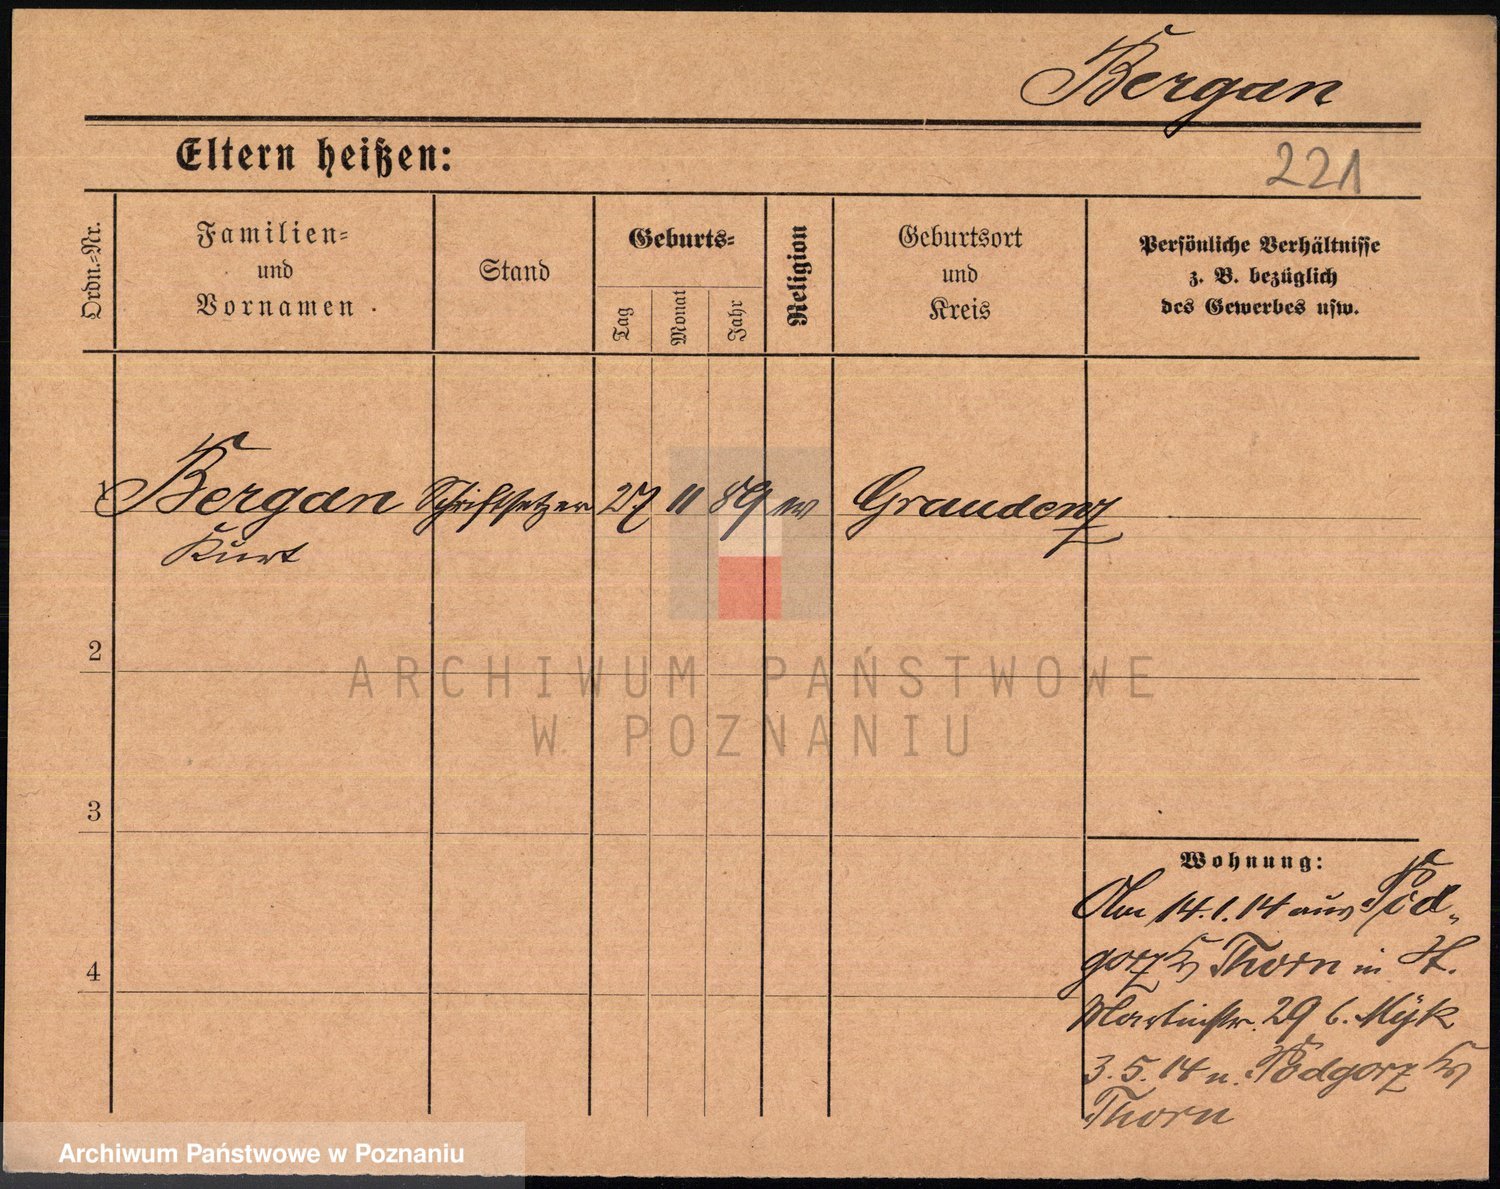 Bergan
Eltern heißen:
221
Ordn.-Nr.
Familien-
und
Vornamen
Stand
Geburts-
Tag
Monat
Jahr
Religion
Geburtsort
und
Kreis
Persönliche Verhältnisse
z. B. bezüglich
des Gewerbes usw.
Bergan Schriftsetzer 27 11 89 ev Graudenz
Kurt
2
3
4
Wohnung:
Am 14.1.14 aus Pod-
gorz Kr Thorn in St.
Martinstr. 29 b. Myk
3.5.14 n. Podgorz Kr
Thorn
ARCHIWUM PAŃSTWOWE
W POZNANIU
Archiwum Państwowe w Poznaniu